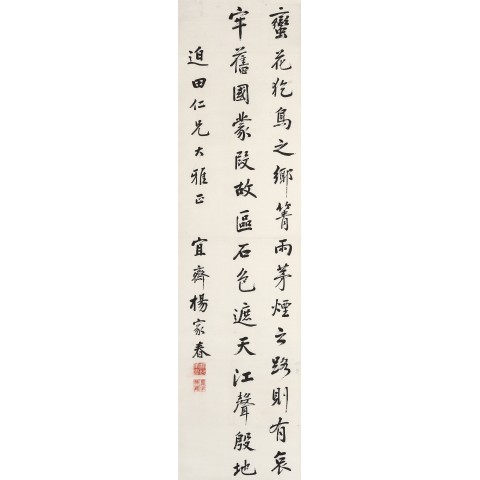 蠻花犵鳥之鄉箐雨茅煙之路則有哀
牢舊國蒙段故區石色遮天江聲殷地
迫田仁兄大雅正
宜齋楊家春